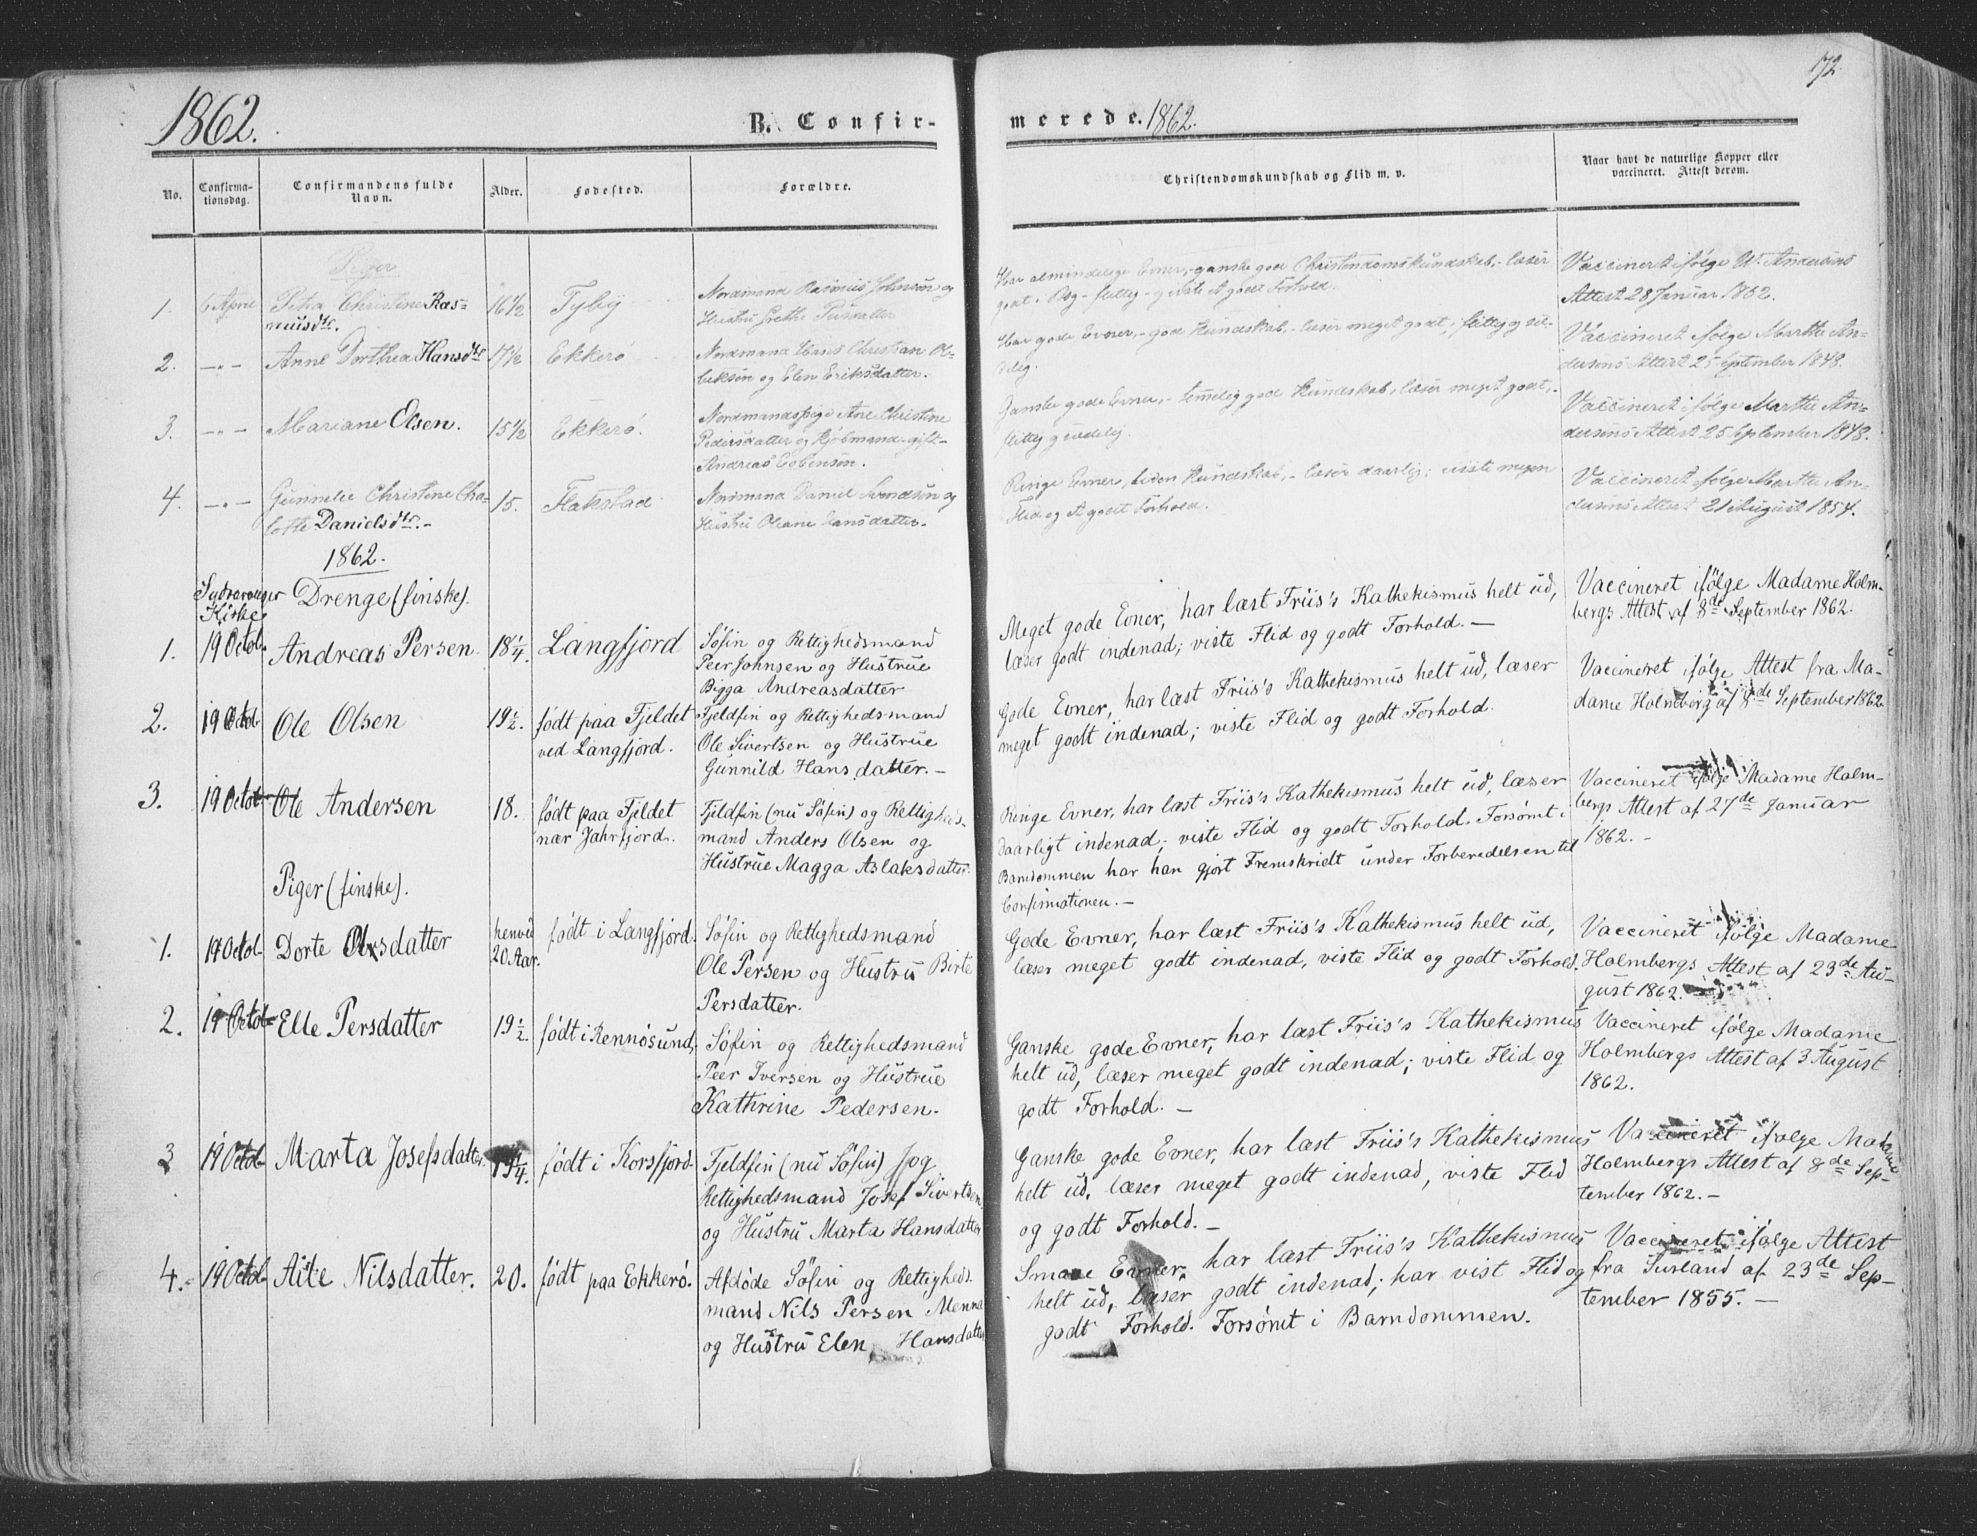 172
1862.
B. Confir-
merede. 1862.
No.
Confirma-
tionsdag.
Confirmandens fulde
Navn.
Alder.
Fødested.
Forældre.
Christendomskundskab og Flid m. v.
Naar havt de naturlige Kopper eller
vaccineret. Attest derom.
Piger
1.
6 April
Petra Christine Ras-
musdtr.
16½
Tyby
Nordmand Rasmus Johnsen og
Hustru Grethe
Har almindelige Evner,- ganske god Christendomskundskab,- læser
godt i Bog - flittig - godt Forhold.
Vaccineret ifølge M. Andersens
Attest 28 Januar 1862.
2.
-"-
Anne Dorthea Hansdtr
17½
Ekkerø
Nordmand Hans Christian
og Elen Eriksdatter.
Har gode Evner,- god Kundskab,- læser meget godt, flittig og sæ-
delig.
Vaccineret ifølge Marthe An-
dersens Attest 25 September 1848.
3.
-"-
Mariane Olsen.
15½
Ekkerø.
Nordmandspige Ane Christine
Pedersdatter og Kjøbmand - gift -
Andreas Esbensen.
Ganske gode Evner,- temelig god Kundskab, læser meget godt,-
flittig g sædelig.
Vaccineret ifølge Marthe An-
dersens Attest 25 September 1848.
4.
-"-
Gunnelie Christine Cha-
lotte Danielsdtr.-
15.
Flakstad
Nordmand Daniel Svendsen og
Hustru Oliane Hansdatter.
Ringe Evner, liden Kundskab,- læser daarlig; viste megen
Flid og et godt Forhold.
Vaccineret ifølge Marthe An-
dersens Attest 21 August 1854.
1862.
Sydvaranger
Kirke
Drenge (finske).
1.
19 Octob.
Andreas Persen.
18¼.
Langfjord
Søfin og Rettighedsmand
Peer Johnsen og Hustrue
Bigga Andreasdatter
Meget gode Evner, har læst Friis's Kathekismus helt ud,
læser godt indenad; viste Flid og godt Forhold. —
Vaccineret ifølge Madame Holm-
bergs Attest af 8de September 1862.
2.
19 Octob
Ole Olsen
19½.
født paa Fjeldet
ved Langfjord.
Fjeldfin og Rettighedsmand
Ole Sivertsen og Hustrue
Gunnild Hansdatter.-
Gode Evner, har læst Friis's Kathekismus helt ud, læser
meget godt indenad; viste Flid og godt Forhold.
Vaccineret ifølge Attest fra Ma-
dame Holmberg af 8de September 1862.
3.
19 Octob
Ole Andersen
18.
født paa Fjeldet
nær Jahrfjord.
Fjeldfin (nu Søfin) og Rettigheds-
mand Anders Olsen og
Hustrue Magga Aslaksdatter.
Ringe Evner, har læst Friis's Kathekismus helt ud, læser
daarligt indenad; viste Flid og godt Forhold. Forsømt i
Barndommen har han gjort Fremskridt under Forberedelsen til
Confirmationen.-
Vaccineret ifølge Madame Holm-
bergs Attest af 27de Januar
1862.-
Piger (finske).
1.
19 Octob
Dorte Olsdatter
henved
20 Aar.
født i Langfjord.
Søfin og Rettighedsmand
Ole Persen og Hustru Birte
Persdatter.
Gode Evner, har læst Friis's Kathekismus helt ud,
læser meget godt indenad, viste Flid og godt Forhold.
Vaccineret ifølge Madame
Holmbergs Attest af 23de Au-
gust 1862.
2.
19 Octob
Elle Persdatter
19½.
født i Rennøsund,
Søfin og Rettighedsmand
Peer Iversen og Hustrue
Kathrine Pedersen.
Ganske gode Evner, har læst Friis's Kathekismus
helt ud, læser meget godt indenad; viste Flid og
godt Forhold. —
Vaccineret ifølge Madame
Holmbergs Attest af 3 August
1862.
3
19 Octob
Marta Josefsdatter
19¼.
født i Korsfjord
Fjeldfin (nu Søfin) og
Rettighedsmand Josef Sivertsen
og Hustru Marta Hansdatter
Ganske gode Evner, har læst Friis's Kathekismus
helt ud, læser meget godt indenad, viste Flid
og godt Forhold.-
Vaccineret ifølge Madame
Holmbergs Attest af 8de Sep-
tember 1862.-
4.
19 Octob
Aite Nilsdatter.
20.
født paa Ekkerø.
Afdøde Søfin og Rettigheds-
mand Nils Persen Menna
og Hustru Elen Hansdatter
Smaae Evner, har læst Friis's Kathekismus
helt ud, læser godt indenad; har vist Flid og
godt Forhold. Forsømt i Barndommen.
Vaccineret ifølge Attest
fra Susland af 23de Sep-
tember 1855. —